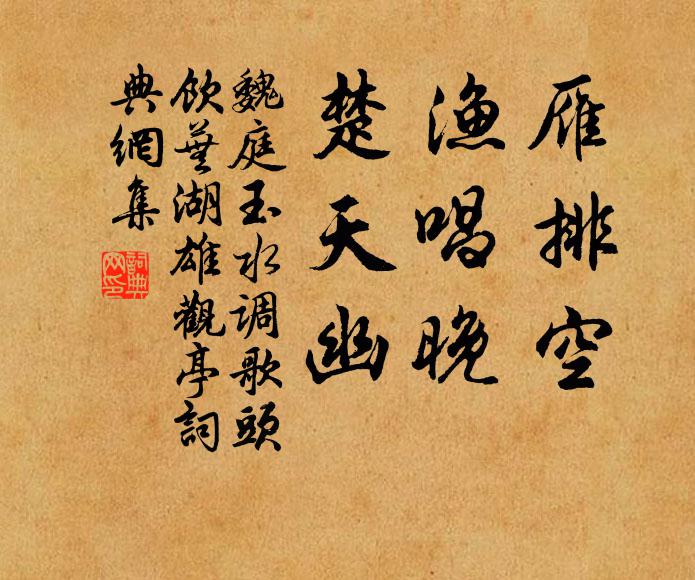 雁排空
漁唱晚
楚天幽
魏庭玉水调歌頭
飲蕪湖雄觀亭詞
典網集
詞典網印